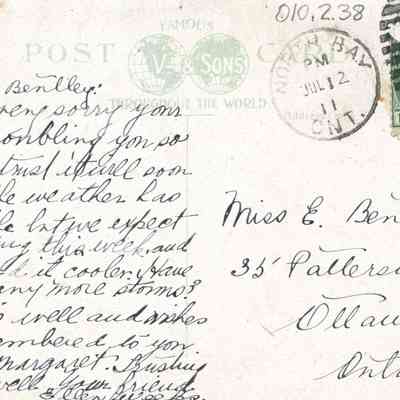 010.2.38
FAMOUS
POST C
V & SONS
THROUGHOUT THE WORLD
NORTH BAY
PM
JUL 12
11
ONT.
Bentley:
very sorry your
oubling you so
trust it will soon
le weather has
le but we expect
ing this week and
d it cooler. Have
any more storms?
s well and wishes
embered to you
margaret. Trusting
well. Your friend
Ellen Weeks.
Miss E. Ben
35 Patters
Ottaw
Onta